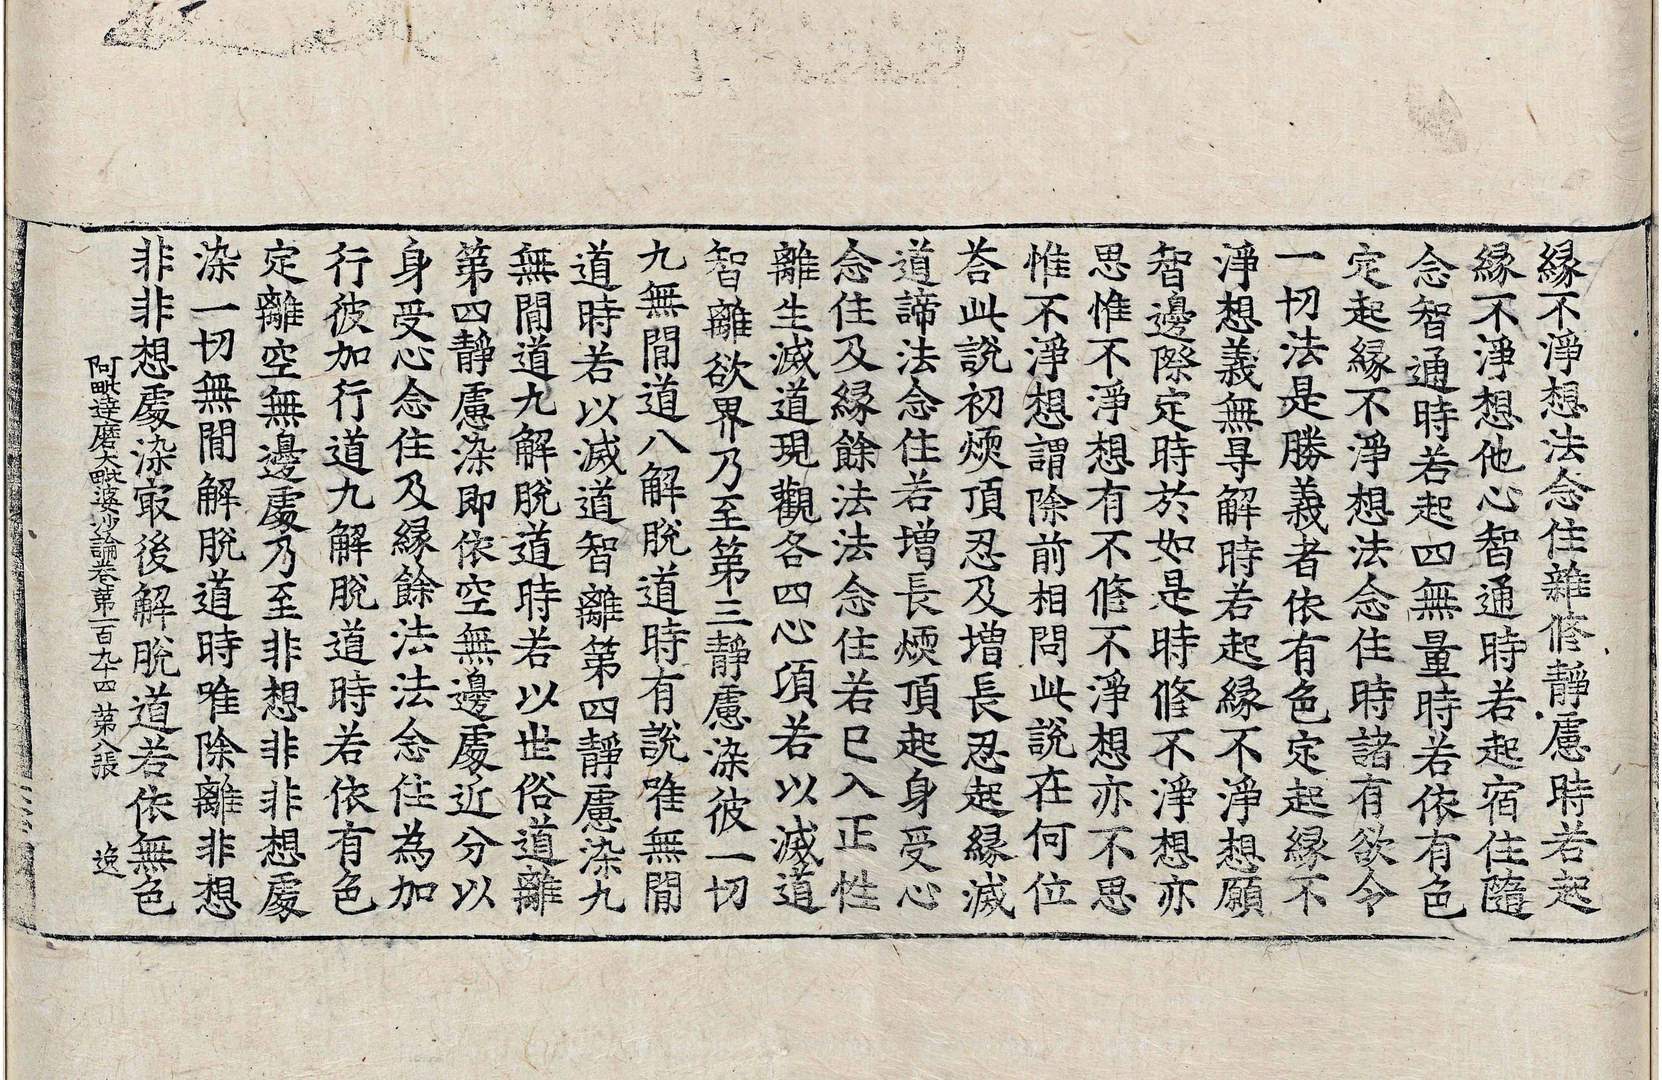 緣不淨想法念住雜修靜慮時若起
緣不淨想他心智通時若起宿住隨
念智通時若起四無量時若依有色
定起緣不淨想法念住時諸有欲令
一切法是勝義者依有色定起緣不
淨想義無㝵解時若起緣不淨想願
智邊際定時於如是時修不淨想亦
思惟不淨想有不修不淨想亦不思
惟不淨想謂除前相問此說在何位
荅此說初煗頂忍及增長忍起緣滅
道諦法念住若增長煗頂起身受心
念住及緣餘法法念住若已入正性
離生滅道現觀各四心頃若以滅道
智離欲界乃至第三靜慮染彼一切
九無閒道八解脫道時有說唯無閒
道時若以滅道智離第四靜慮染九
無閒道九解脫道時若以世俗道離
第四靜慮染即依空無邊處近分以
身受心念住及緣餘法法念住為加
行彼加行道九解脫道時若依有色
定離空無邊處乃至非想非非想處
染一切無閒解脫道時唯除離非想
非非想處染㝡後解脫道若依無色
阿毗達磨大毗婆沙論卷第一百九十四 第八張 逸